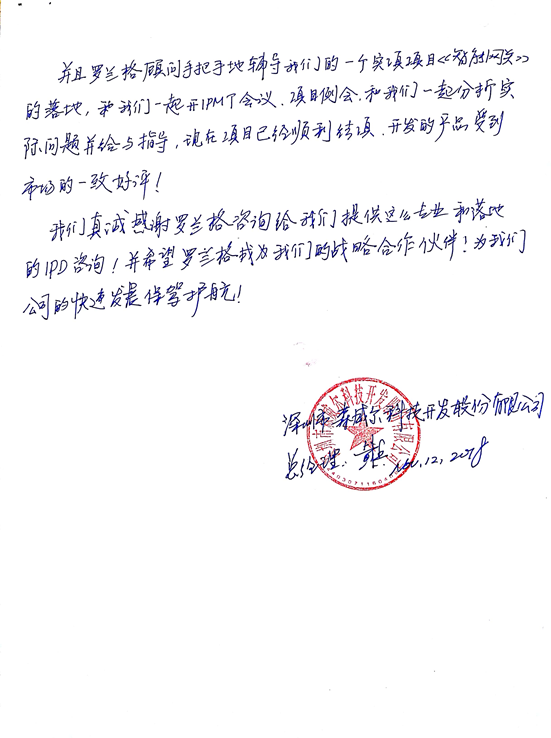 并且罗兰格顾问手把手地辅导我们的一个实项项目《智能网关》
的落地，和我们一起开IPMT会议、项目例会、和我们一起分析实
际问题并给与指导，现在项目已经顺利结项、开发的产品受到
市场的一致好评！
我们真诚感谢罗兰格咨询给我们提供这么专业和落地
的IPD咨询！并希望罗兰格成为我们的战略合作伙伴！为我们
公司的快速发展保驾护航！
深圳市 科技开发股份有限公司
总经理： 12, 2018